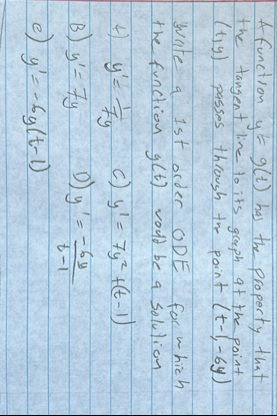 A function y = g(t) has the property that
the tangent line to its graph at the point
(t,y) passes through the point (t-1,-6y)
Write a 1st order ODE for which
the function g(t) would be a solution
A) y' = 1/7y
C) y' = 7y² + (t-1)
B) y' = 7y
D) y' = -6y/t-1
e) y' = -6y(t-1)